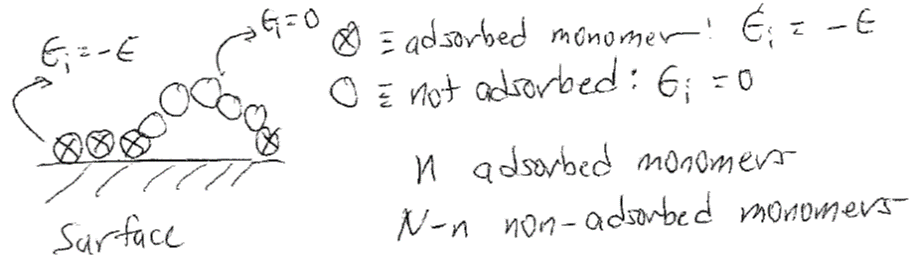 ϵᵢ = -ϵ
ϵᵢ = 0
⊗ ≡ adsorbed monomer: ϵᵢ = -ϵ
○ ≡ not adsorbed: ϵᵢ = 0
n adsorbed monomers
N-n non-adsorbed monomers
Surface